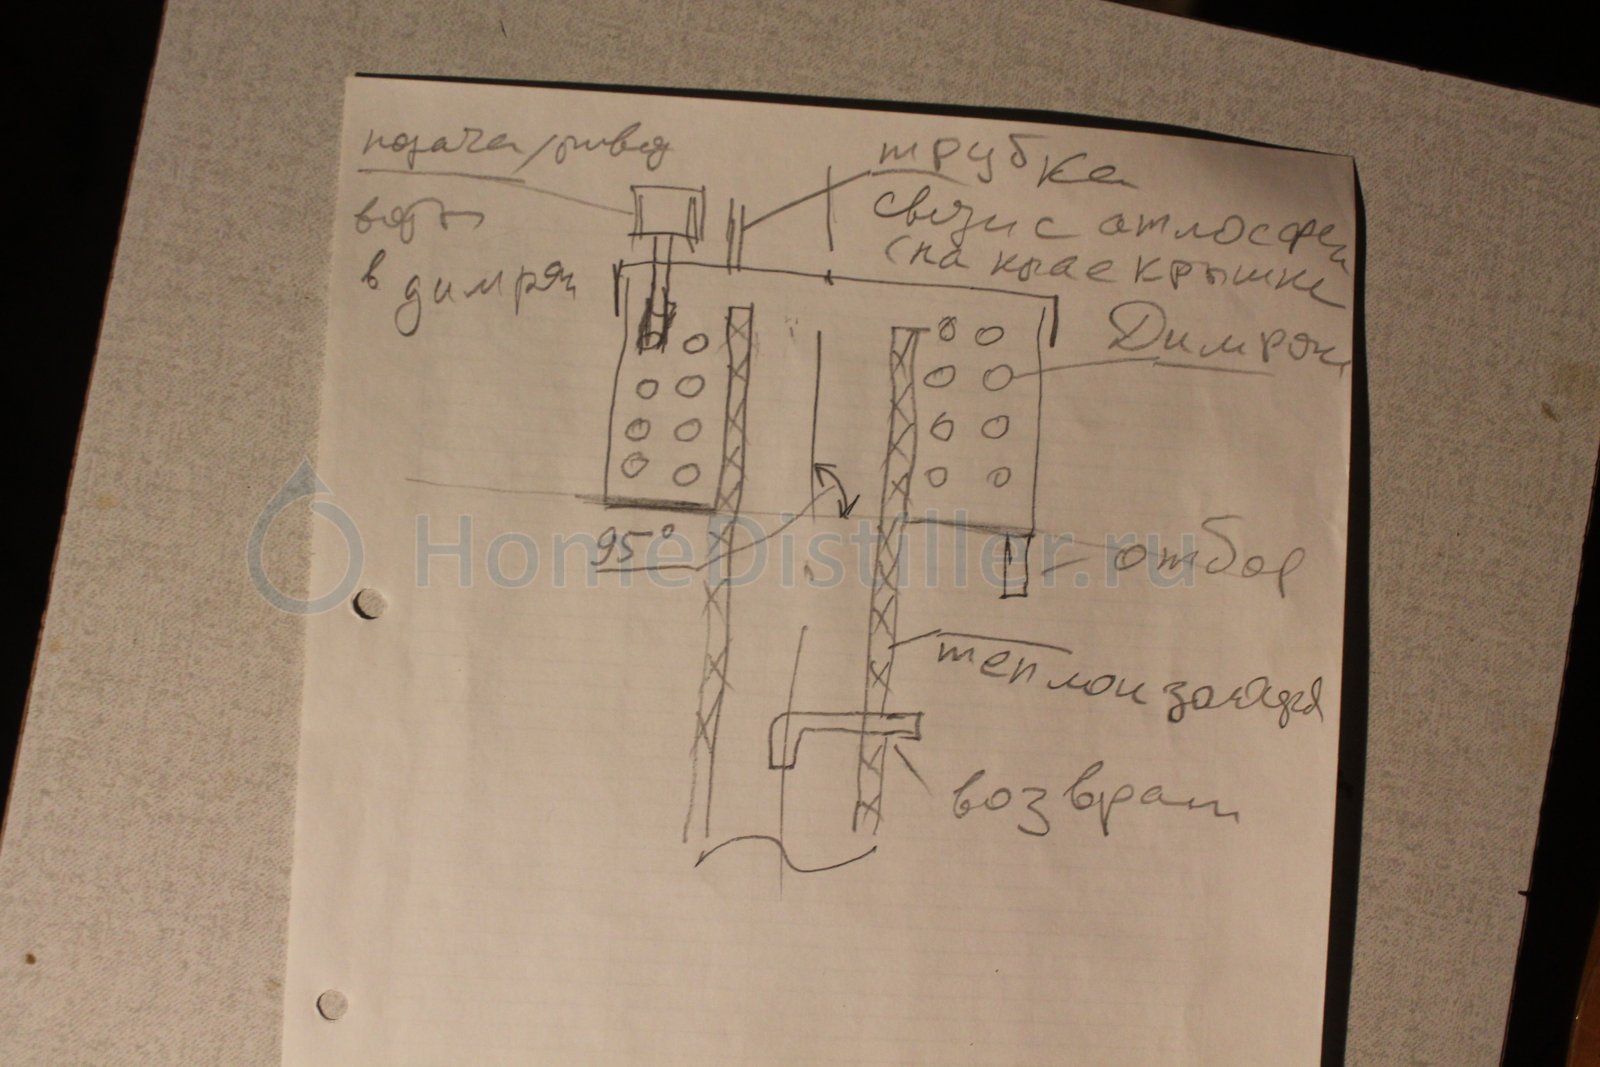 подача/отвод
воды
в димрот
трубка
связи с атмосфер
(на краю крышки
Димрот
95°
HomeDistiller.ru
отбор
теплоизоляция
возврат